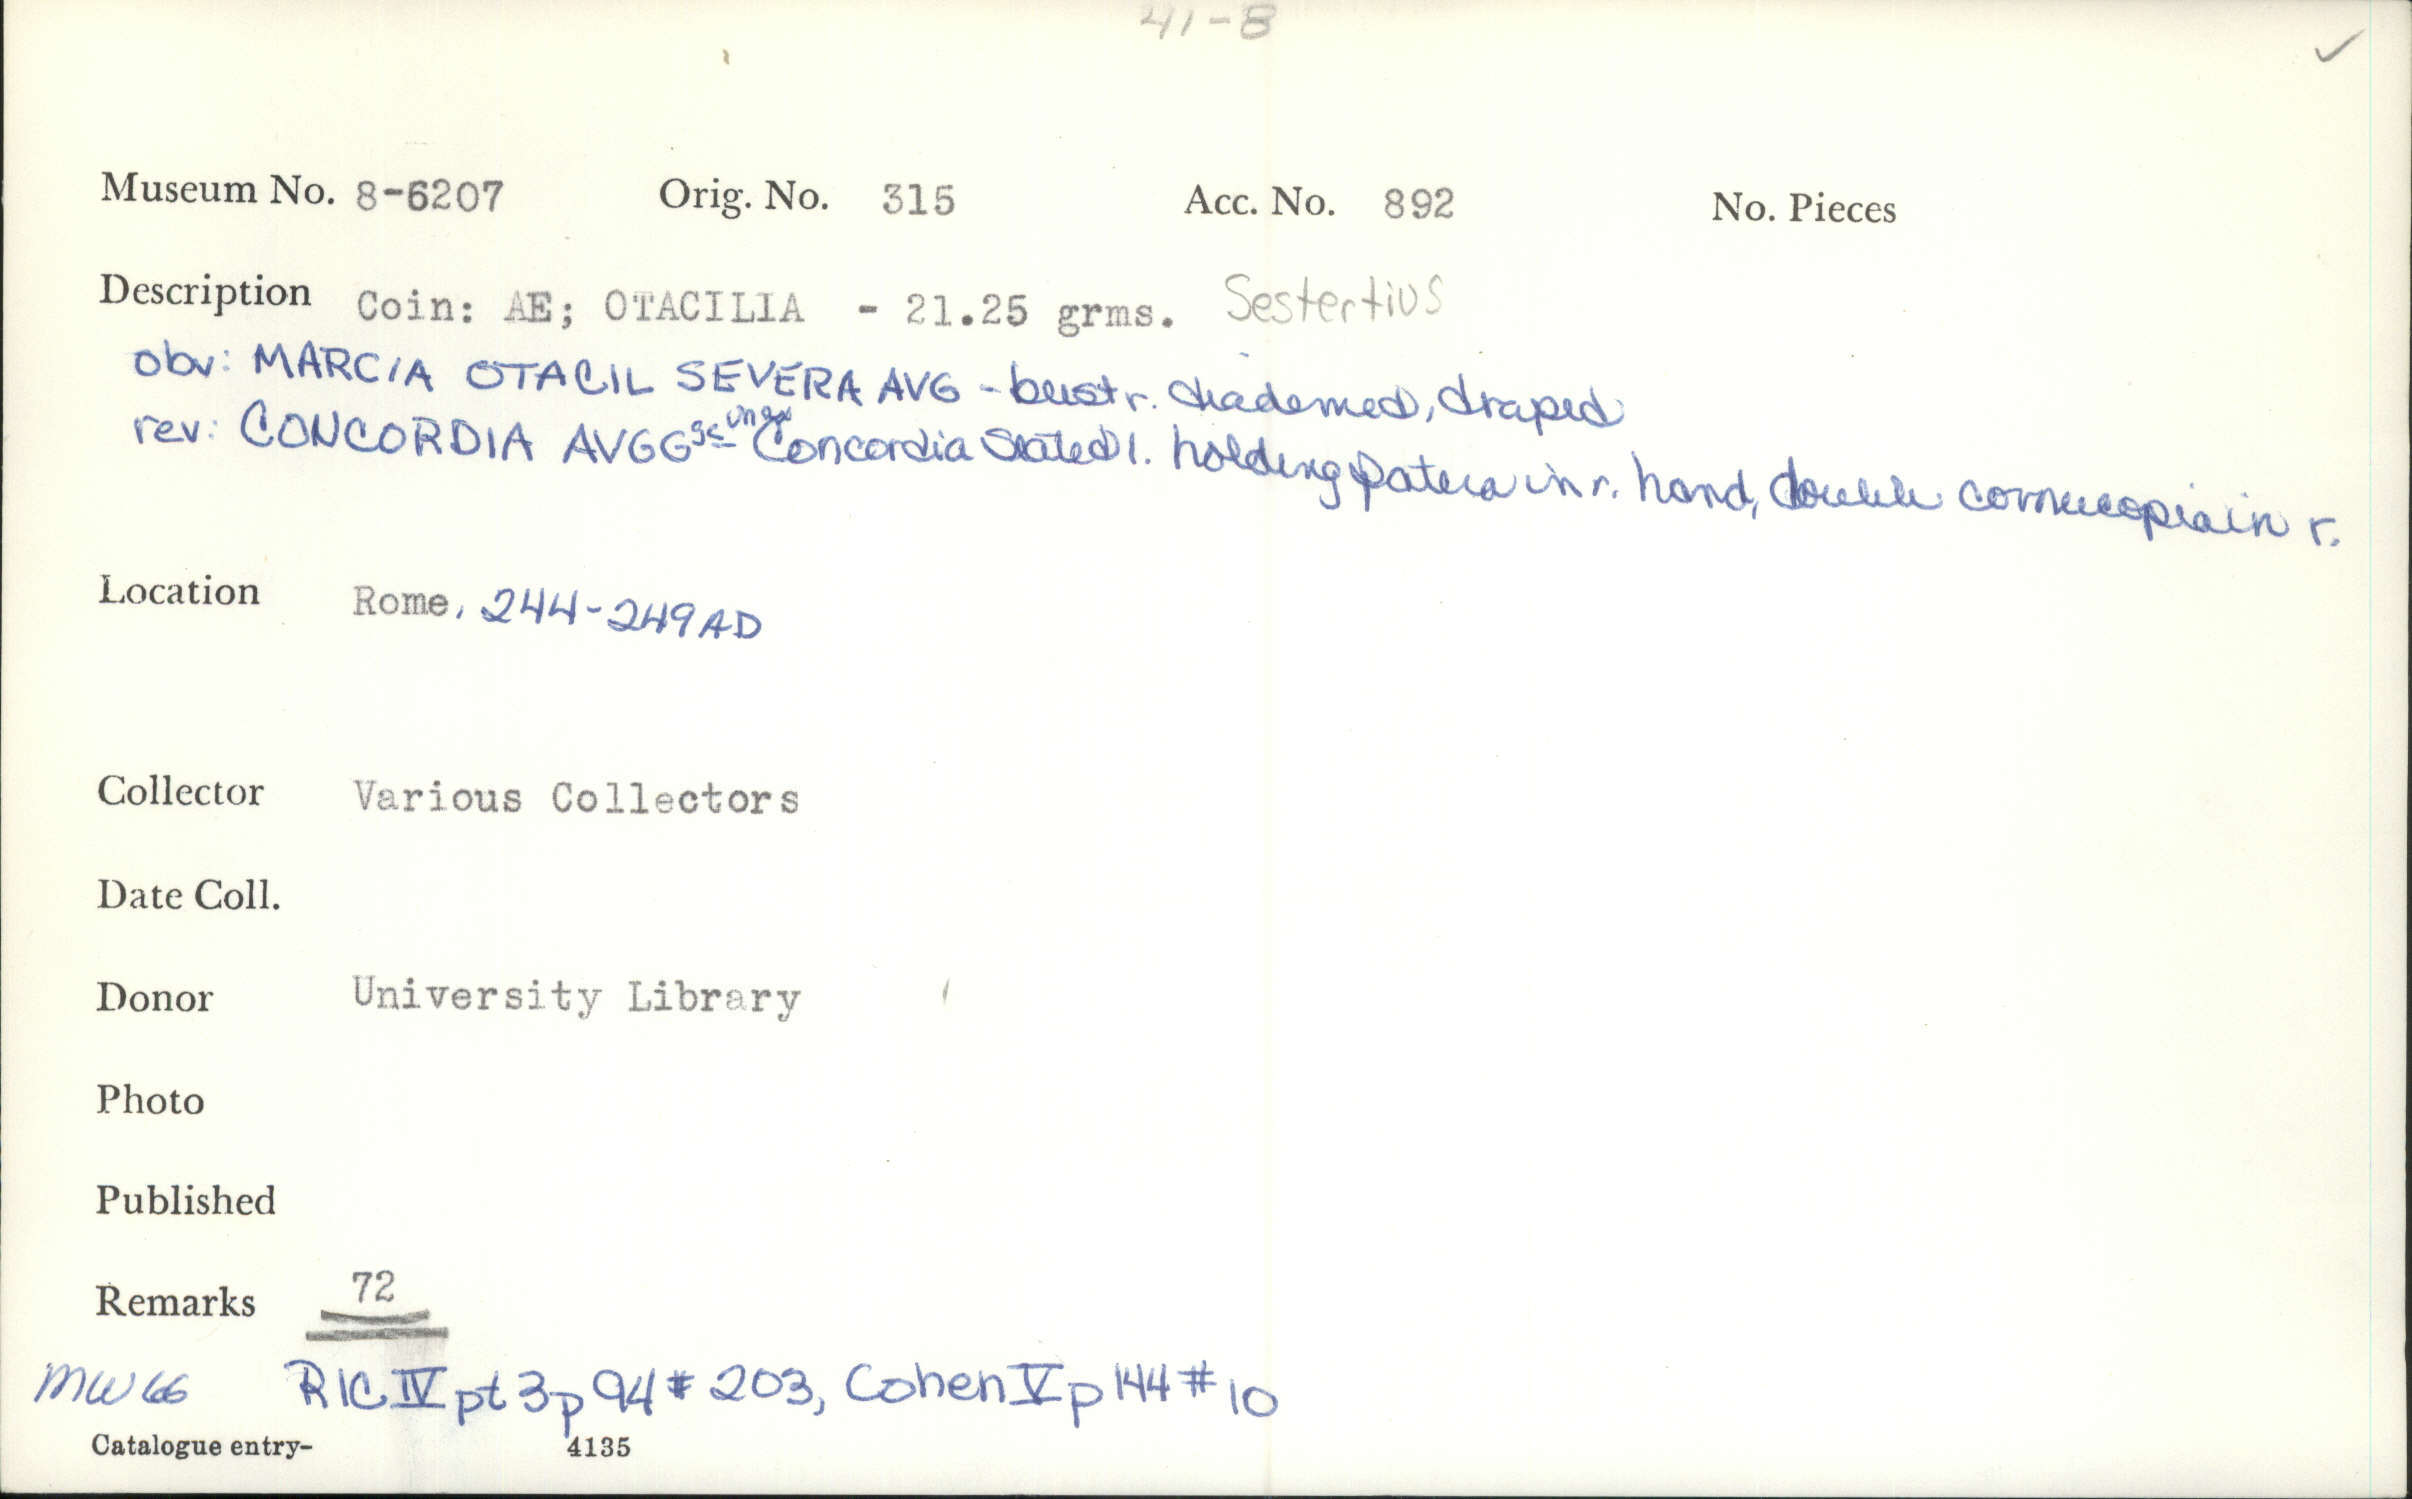 41-8
Museum No. 8-6207 Orig. No. 315 Acc. No. 892 No. Pieces
Description Coin: AE; OTACILIA - 21.25 grms. Sestertius
obv: MARCIA OTACIL SEVERA AVG - bust r. diademed, draped
rev: CONCORDIA AVGG sc in ex Concordia seated l. holding patera in r. hand, double cornucopia in r.
Location Rome, 244-249 AD
Collector Various Collectors
Date Coll.
Donor University Library
Photo
Published
Remarks 72
MW 66 RIC IV pt 3 p 94 # 203, Cohen V p 144 # 10
Catalogue entry- 4135